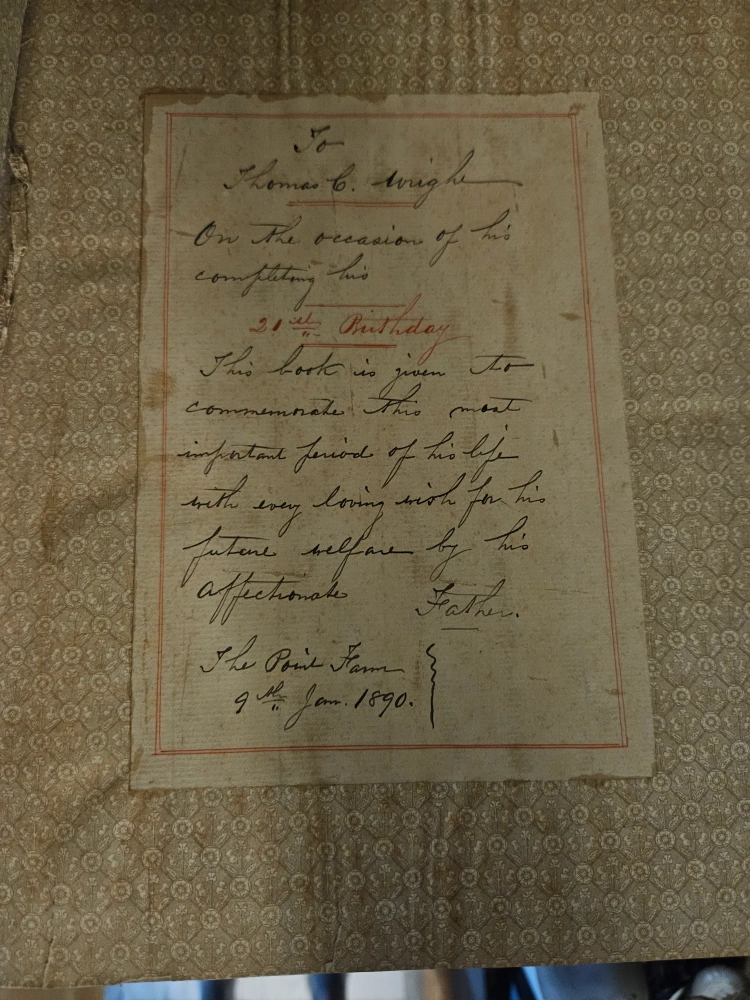 To
Thomas C. Wright
On the occasion of his
completing his
21st Birthday
This book is given to
commemorate this most
important period of his life
with every loving wish for his
future welfare by his
affectionate Father.
The Point Farm
9th Jan. 1890.